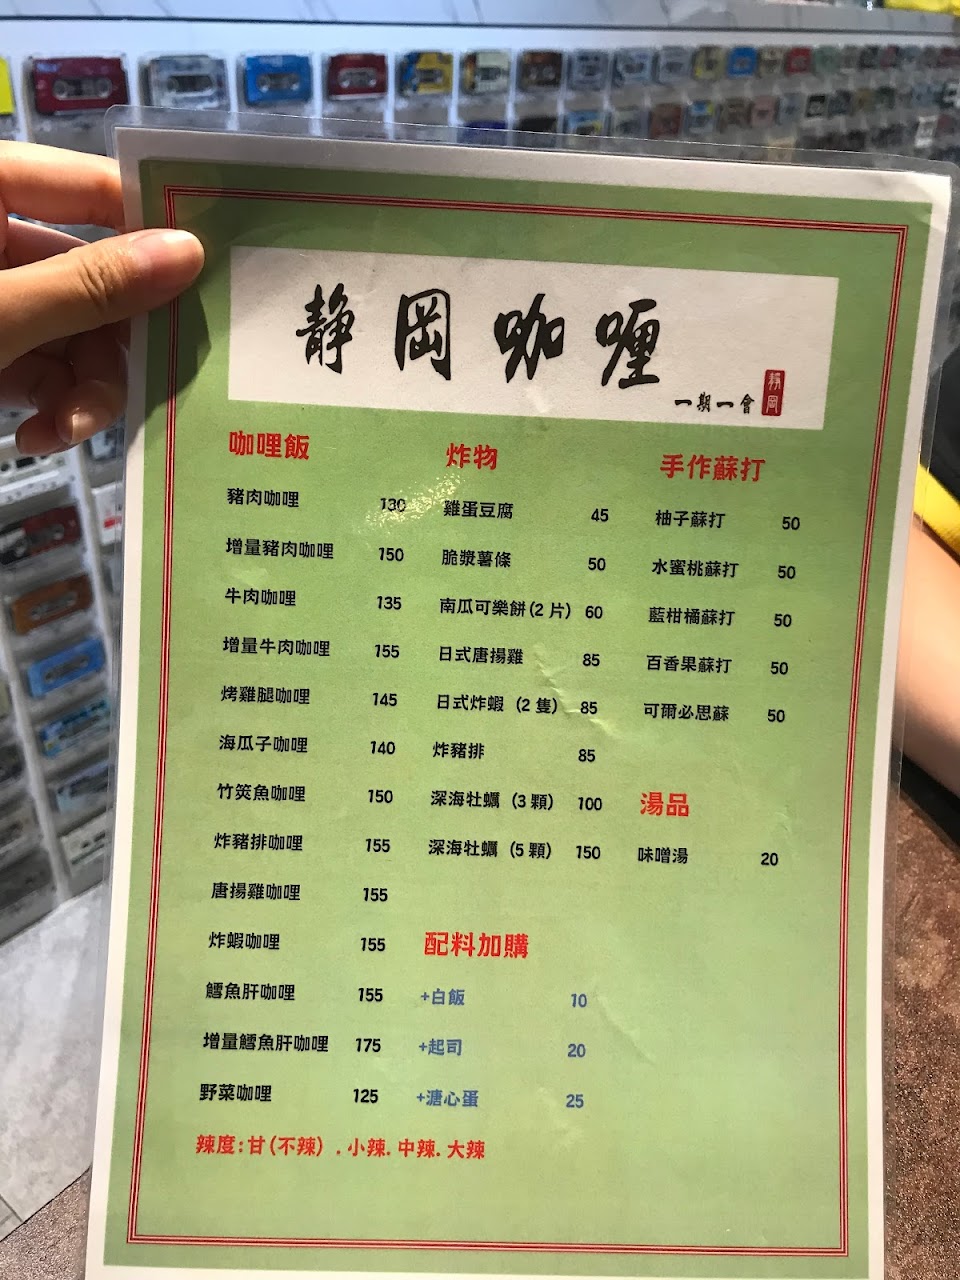 静岡咖喱
一期一會
靜岡
咖哩飯
豬肉咖哩 130
增量豬肉咖哩 150
牛肉咖哩 135
增量牛肉咖哩 155
烤雞腿咖哩 145
海瓜子咖哩 140
竹筴魚咖哩 150
炸豬排咖哩 155
唐揚雞咖哩 155
炸蝦咖哩 155
鱈魚肝咖哩 155
增量鱈魚肝咖哩 175
野菜咖哩 125
辣度:甘(不辣).小辣.中辣.大辣
炸物
雞蛋豆腐 45
脆漿薯條 50
南瓜可樂餅(2片) 60
日式唐揚雞 85
日式炸蝦 (2隻) 85
炸豬排 85
深海牡蠣 (3顆) 100
深海牡蠣 (5顆) 150
配料加購
+白飯 10
+起司 20
+溏心蛋 25
手作蘇打
柚子蘇打 50
水蜜桃蘇打 50
藍柑橘蘇打 50
百香果蘇打 50
可爾必思蘇 50
湯品
味噌湯 20